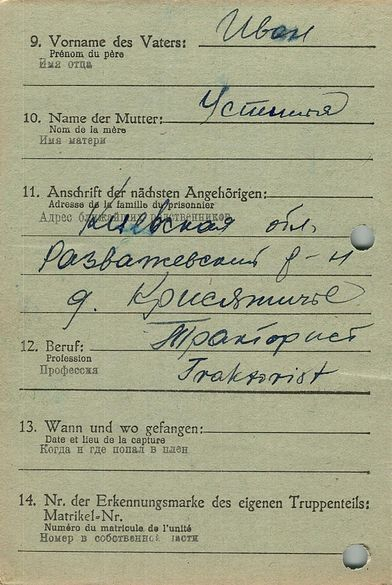 9. Vorname des Vaters: Иван
Prénom du père
Имя отца
10. Name der Mutter: Устиния
Nom de la mère
Имя матери
11. Anschrift der nächsten Angehörigen:
Adresse de la famille du prisonnier
Адрес ближайших родственников
Киевская обл.
Розважевский р-н
д.
12. Beruf: Тракторист
Profession
Профессия
Traktorist
13. Wann und wo gefangen:
Date et lieu de la capture
Когда и где попал в плен
14. Nr. der Erkennungsmarke des eigenen Truppenteils:
Matrikel-Nr.
Numéro du matricule de l'unité
Номер в собственной части